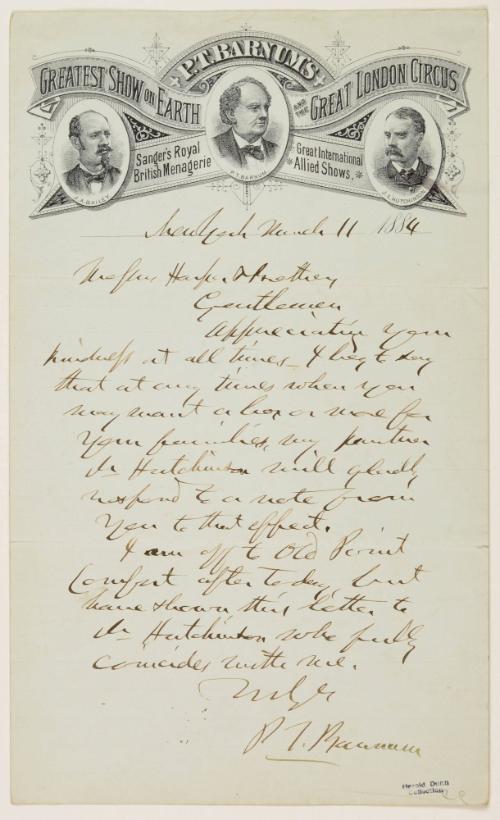 P.T. BARNUM'S
GREATEST SHOW ON EARTH AND THE GREAT LONDON CIRCUS
Sanger's Royal British Menagerie
Great International Allied Shows.
J.A. BAILEY
P.T. BARNUM
J.L. HUTCHINSON
New York March 11 1884
Messrs Harper & Brothers
Gentlemen
Appreciating your
kindness at all times - I beg to say
that at any times when you
may want a box or more for
your families, my partner
Mr Hutchinson will gladly
respond to a note from
you to that effect.
I am off to Old Point
Comfort after today, but
have shown this letter to
Mr Hutchinson who fully
coincides with me.
P. T. Barnum
Harold Dunn
Collection